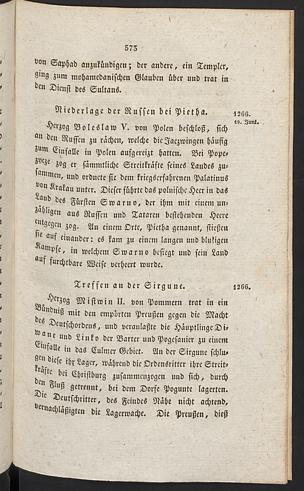 573
von Saphad anzukündigen; der andere, ein Templer,
ging zum mohamedanischen Glauben über und trat in
den Dienst des Sultans.
Niederlage der Russen bei Pietha.
1266.
19. Juni.
Herzog Boleslaw V. von Polen beschloß, sich
an den Russen zu rächen, welche die Jaczwingen häufig
zum Einfalle in Polen aufgereizt hatten. Bei
zog er sämmtliche Streitkräfte seines Landes zu-
sammen, und ordnete sie dem kriegserfahrenen Palatinus
von Krakau unter. Dieser führte das polnische Heer in das
Land des Fürsten Swarno, der ihm mit einem un-
zähligen aus Russen und Tataren bestehenden Heere
entgegen zog. An einem Orte, Pietha genannt, stießen
sie auf einander: es kam zu einem langen und blutigen
Kampfe, in welchem Swarno besiegt und sein Land
auf furchtbare Weise verheert wurde.
Treffen an der Sirgune.
1266.
Herzog Mistwin II. von Pommern trat in ein
Bündniß mit den empörten Preußen gegen die Macht
des Deutschordens, und veranlaßte die Häuptlinge Di-
wane und Linko der Barter und Pogesanier zu einem
Einfalle in das Culmer Gebiet. An der Sirgune schlu-
gen diese ihr Lager, während die Ordensritter ihre Streit-
kräfte bei Christburg zusammenzogen und sich, durch
den Fluß getrennt, bei dem Dorfe Pogunte lagerten.
Die Deutschritter, des Feindes Nähe nicht achtend,
vernachläßigten die Lagerwache. Die Preußen, dieß